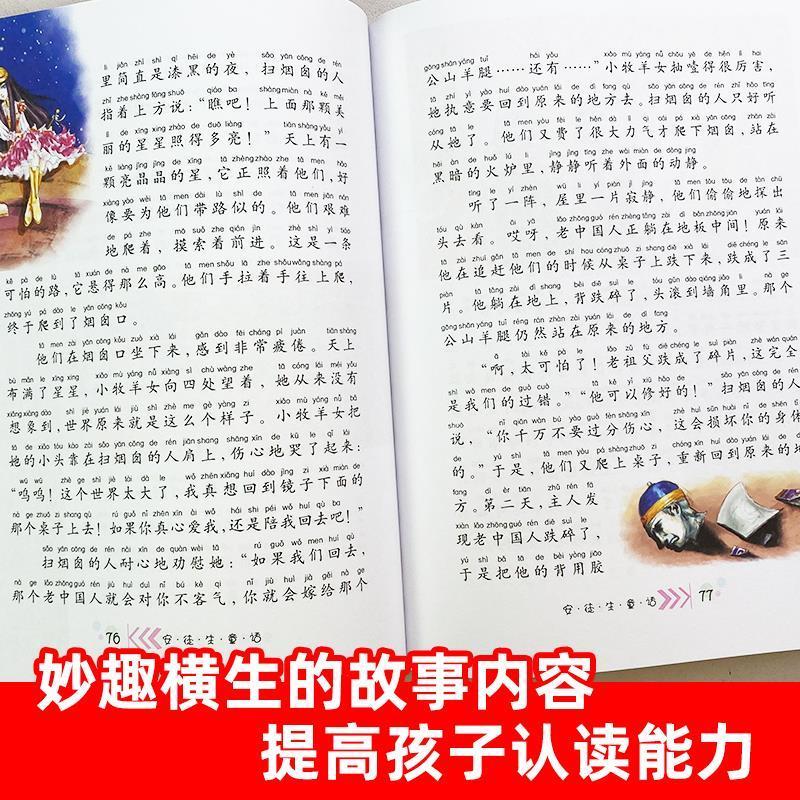 lǐ jiǎn zhí shì qī hēi de yè sǎo yān cōng de rén
里简直是漆黑的夜，扫烟囱的人
zhǐ zhe shàng fāng shuō qiáo ba shàng miàn nà kē měi
指着上方说：“瞧吧！上面那颗美
lì de xīng xing zhào de duō liàng tiān shàng yǒu yì
丽的星星照得多亮！”天上有一
kē liàng jīng jīng de xīng tā zhèng zhào zhe tā men hǎo
颗亮晶晶的星，它正照着他们，好
xiàng yào wèi tā men dài lù shì de tā men jiān nán
像要为他们带路似的。他们艰难
de pá zhe mō suǒ zhe qián jìn zhè shì yì tiáo
地爬着，摸索着前进。这是一条
kě pà de lù tā xuán de nà me gāo tā men shǒu lā zhe shǒu wǎng shàng pá
可怕的路，它悬得那么高。他们手拉着手往上爬，
zhōng yú pá dào le yān cōng kǒu
终于爬到了烟囱口。
tā men zài yān cōng kǒu zuò xià lái gǎn dào fēi cháng pí juàn tiān shàng
他们在烟囱口坐下来，感到非常疲倦。天上
bù mǎn le xīng xing xiǎo mù yáng nǚ xiàng sì chù wàng zhe tā cóng lái méi yǒu
布满了星星，小牧羊女向四处望着，她从来没有
xiǎng xiàng dào shì jiè yuán lái jiù shì zhè me gè yàng zi xiǎo mù yáng nǚ bǎ
想象到，世界原来就是这么个样子。小牧羊女把
tā de xiǎo tóu kào zài sǎo yān cōng de rén jiān shang shāng xīn de kū le qǐ lái
她的小头靠在扫烟囱的人肩上，伤心地哭了起来：
wū wū zhè ge shì jiè tài dà le wǒ zhēn xiǎng huí dào jìng zi xià miàn de
“呜呜！这个世界太大了，我真想回到镜子下面的
nà ge zhuō zi shàng qù rú guǒ nǐ zhēn xīn ài wǒ hái shi péi wǒ huí qù ba
那个桌子上去！如果你真心爱我，还是陪我回去吧！”
sǎo yān cōng de rén nài xīn de quàn wèi tā rú guǒ wǒ men huí qù
扫烟囱的人耐心地劝慰她：“如果我们回去，
nà ge lǎo zhōng guó rén jiù huì duì nǐ bú kè qi nǐ jiù huì jià gěi nà ge
那个老中国人就会对你不客气，你就会嫁给那个
76 安·徒·生·童·话
gōng shān yáng tuǐ hái yǒu xiǎo mù yáng nǚ chōu yè de hěn lì hai
公山羊腿……还有……”小牧羊女抽噎得很厉害，
tā zhí yì yào huí dào yuán lái de dì fang qù sǎo yān cōng de rén zhǐ hǎo tīng
她执意要回到原来的地方去。扫烟囱的人只好听
cóng tā le tā men yòu fèi le hěn dà lì qi cái pá xià yān cōng zhàn zài
从她了。他们又费了很大力气才爬下烟囱，站在
hēi àn de huǒ lú lǐ jìng jìng tīng zhe wài miàn de dòng jing
黑暗的火炉里，静静听着外面的动静。
tīng le yí zhèn wū lǐ yí piàn jì jìng tā men tōu tōu de tàn chū
听了一阵，屋里一片寂静，他们偷偷地探出
tóu qù kàn āi yā lǎo zhōng guó rén zhèng tǎng zài dì bǎn zhōng jiān yuán lái
头去看。哎呀，老中国人正躺在地板中间！原来
tā zài zhuī gǎn tā men de shí hou cóng zhuō zi shang diē xià lái diē chéng le sān
他在追赶他们的时候从桌子上跌下来，跌成了三
piàn tā tǎng zài dì shàng bèi diē suì le tóu gǔn dào qiáng jiǎo lǐ nà ge
片。他躺在地上，背跌碎了，头滚到墙角里。那个
gōng shān yáng tuǐ réng rán zhàn zài yuán lái de dì fang
公山羊腿仍然站在原来的地方。
à tài kě pà le lǎo zǔ fù diē chéng le suì piàn zhè wán quán
“啊，太可怕了！老祖父跌成了碎片，这完全
shì wǒ men de guò cuò tā kě yǐ xiū hǎo de sǎo yān cōng de rén
是我们的过错。”“他可以修好的！”扫烟囱的人
shuō nǐ qiān wàn bú yào guò fèn shāng xīn zhè huì sǔn huài nǐ de shēn tǐ
说，“你千万不要过分伤心，这会损坏你的身体
de yú shì tā men yòu pá shàng zhuō zi chóng xīn huí dào yuán lái de dì
的。”于是，他们又爬上桌子，重新回到原来的地
fang dì èr tiān zhǔ rén fā
方。第二天，主人发
xiàn lǎo zhōng guó rén diē suì le
现老中国人跌碎了，
yú shì bǎ tā de bèi yòng jiāo
于是把他的背用胶
安·徒·生·童·话 77
妙趣横生的故事内容
提高孩子认读能力